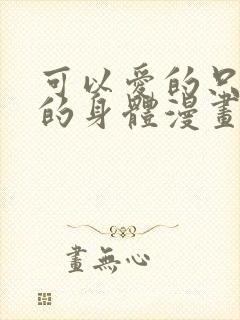 可以愛的
的身體漫畫
畫無心